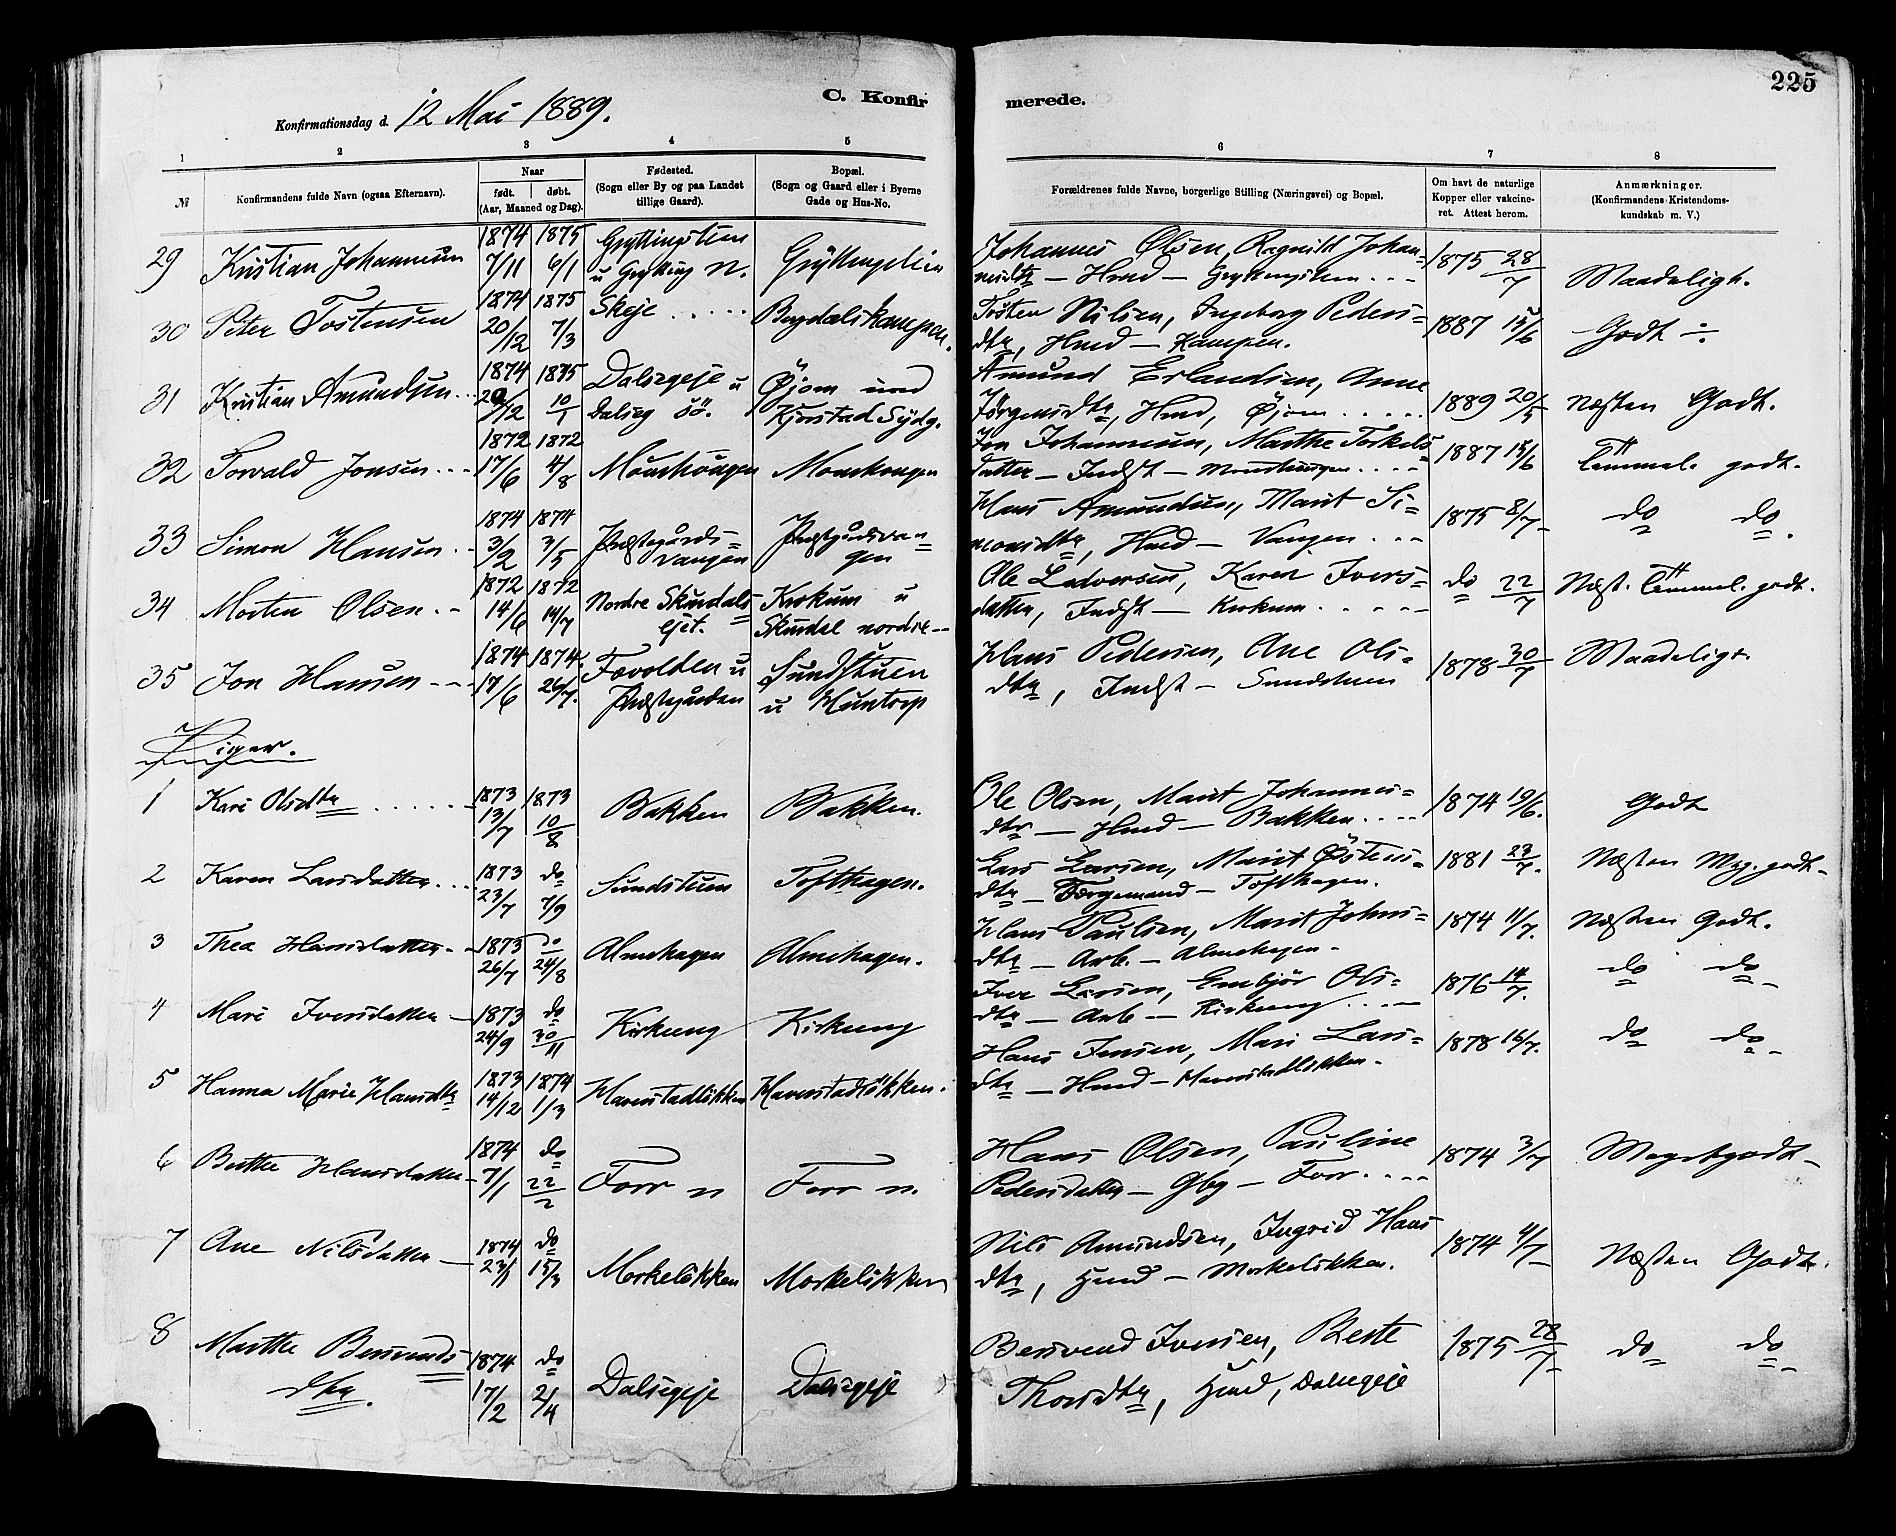 225
C. Konfirmerede.
Konfirmationsdag d. 12 Mai 1889.
1 2 3 4 5 6 7 8
№ Konfirmandens fulde Navn (ogsaa Efternavn). Naar født. døbt. (Aar, Maaned og Dag). Fødested. (Sogn eller By og paa Landet tillige Gaard). Bopæl. (Sogn og Gaard eller i Byerne Gade og Hus-No. Forældrenes fulde Navne, borgerlige Stilling (Næringsvei) og Bopæl. Om havt de naturlige Kopper eller vakcineret. Attest herom. Anmærkninger. (Konfirmandens Kristendomskundskab m. V.)
29 Kristian Johannesen 1874 7/11 1875 6/1 Gryttingstuen u Grytting n. Johannes Olsen, Ragnild Johannesdtr – Hmd – 1875 28/7 Maadeligt.
30 Peter Tostensen 1874 20/12 1875 7/3 Skeje Bogdalskampen. Tosten Nilsen, Ingeborg Pedersdtr, Hmd – Kampen. 1887 15/6 Godt ÷
31 Kristian Amundsen 1874 1875 10/1 Dalsegeje u Dalseg sö. Öjom und Kjorstad Sydg. Amund Erlandsen, Anne Jørgensdtr, Hmd, Öjom 1889 20/5 Næsten Godt.
32 Torvald Jonsen 1872 17/6 1872 4/8 Moushougen Moushougen Jon Johannesen, Marthe Torkelsdatter – Indst – Moushaugen 1887 15/6 Temmel. godt.
33 Simon Hansen 1874 3/2 1874 3/5 Præstegårdsvangen Præstgårdsvangen Hans Amundsen, Marit Simonsdtr, Hmd – Vangen 1875 8/7 do do.
34 Morten Olsen 1872 14/6 1872 14/7 Nordre Skurdalsejet. Krokum u Skurdal nordre Ole Ludvorsen, Karen Iversdatter, Indst – Krokum do 22/7 Næst. Temmel. godt.
35 Jon Hansen 1874 17/6 1874. 26/7. u Præstegården Sundstuen u Huntorp Hans Pedersen, Ane Olsdtr, Indst – Sundstuen 1878 30/7 Maadeligt.
Piger.
1 Kari Olsdtr 1873 13/7 1873 10/8 Bakken Bakken. Ole Olsen, Marit Johannesdtr – Hmd – Bakken 1874 19/6. Godt
2 Karen Larsdatter 1873 23/7 do 7/9 Sundstuen Tofthagen. Lars Larsen, Marit Östensdtr – Færgemand – Tofthagen. 1881 23/7. Næsten Meg. godt
3 Thea Hansdatter 1873 26/7 do 24/8 Almehagen Almehagen. Hans Paulsen, Marit Johnsdtr – Arb. – Almehagen. 1874 11/7. Næsten Godt.
4 Mari Iversdatter 1873 24/9 do 30/11 Kirkeeng Kirkeng Iver Larsen, Embjör Olsdtr – Arb – Kirkeng 1876 14/7. do do
5 Hanna Marie Hansdtr 1873 14/12 1874 1/3 Haverstadlökken Haverstadlökken. Hans Jensen, Mari Larsdtr – Hmd – Haverstadlökken. 1878 16/7. do do
6 Berthe Hansdatter 1874 7/1 do 22/2 Forr n Forr n. Hans Olsen, Pauline Pedersdatter – Gbg – Forr 1874 3/7 Megetgodt
7 Ane Nilsdatter 1874 23/1 do 15/3 Morkelökken Morkelökken Nils Amundsen, Ingrid Hansdtr, Hmd – Morkelökken. 1874 4/7 Næsten Godt.
8 Marthe Bersvendsdtr. 1874 17/2 do 2/4 Dalsegeje Dalsegeje Bersvend Iversen, Beste Thorsdtr, Hmd, Dalsegeje 1875 28/7 do do